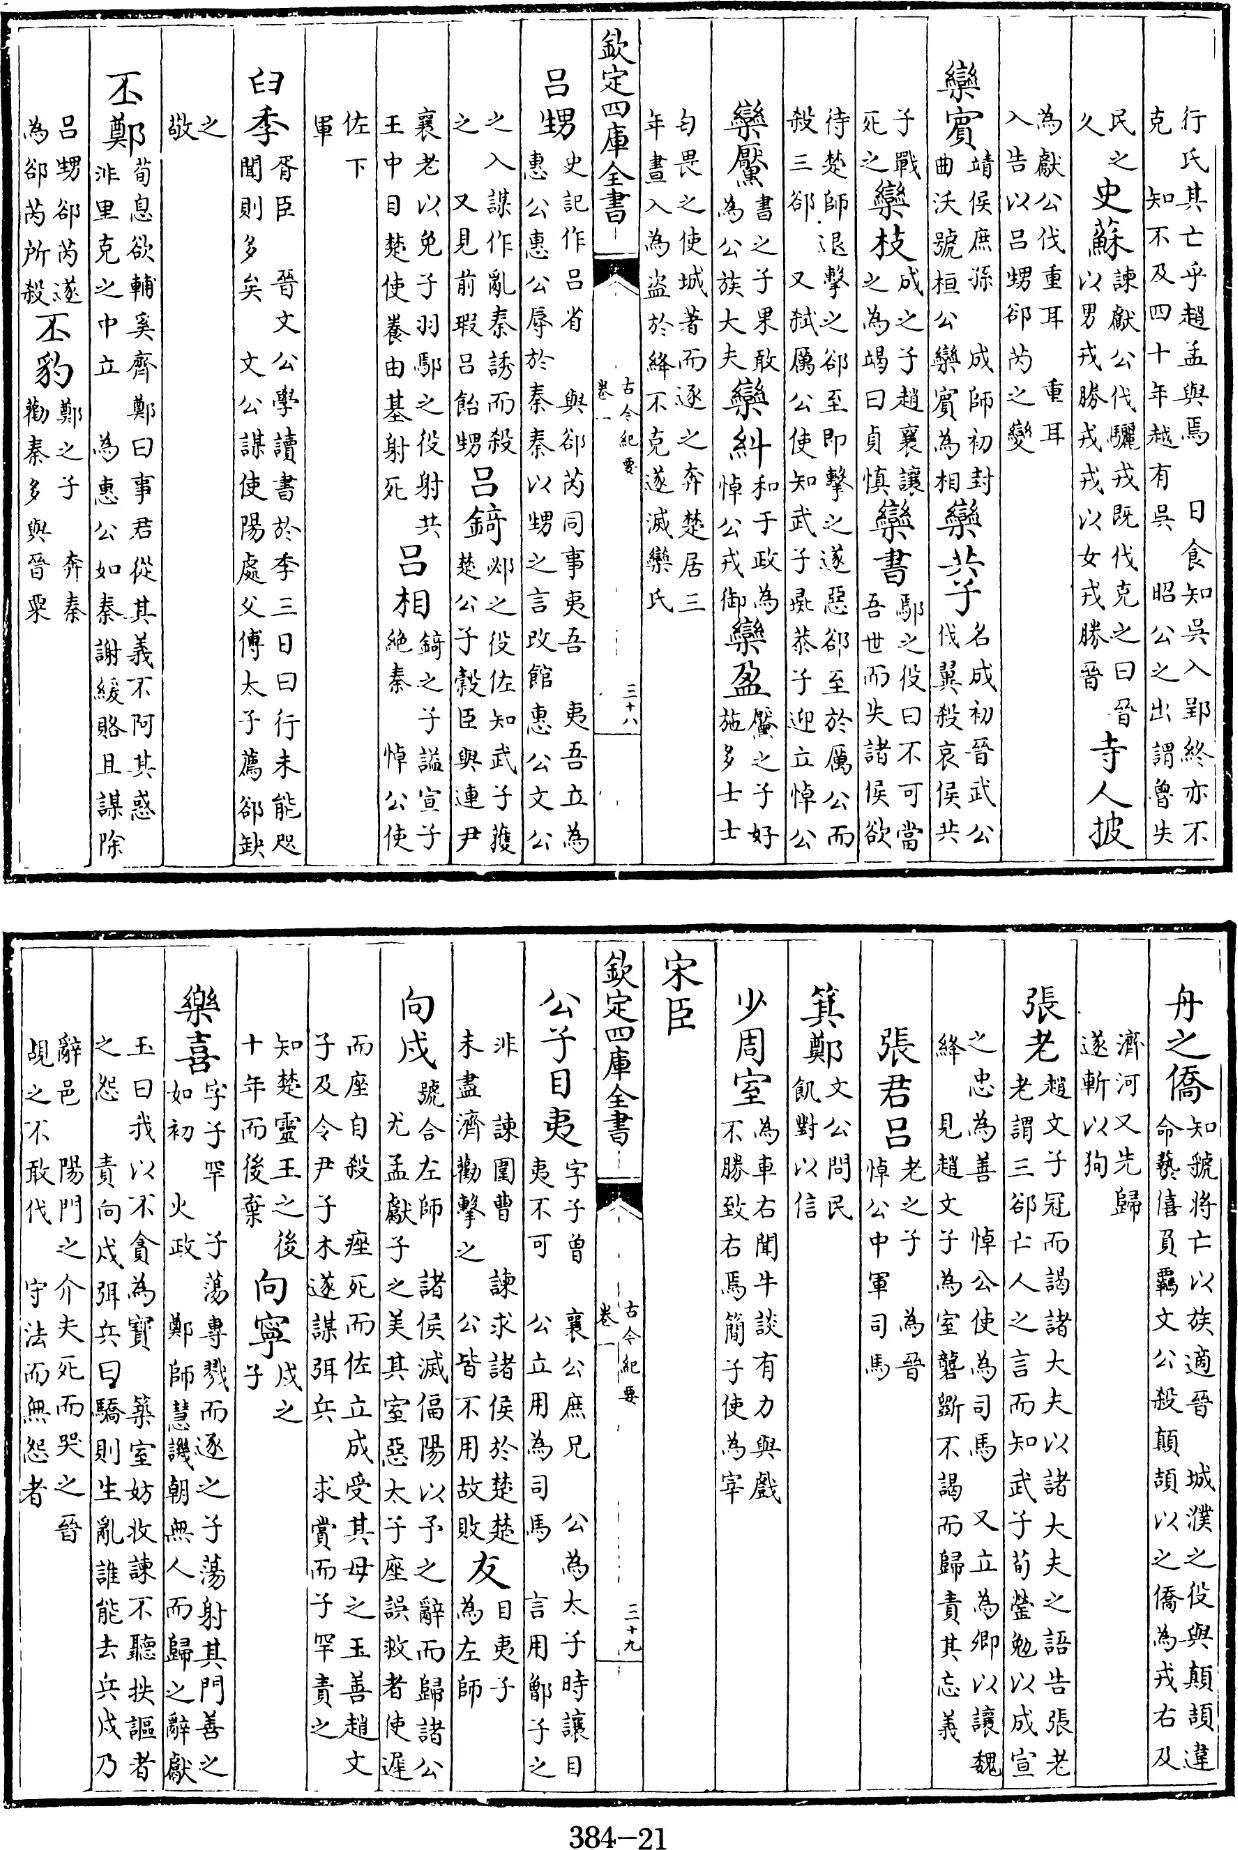 行氏其亡乎趙孟與焉 日食知吳入郢終亦不
克 知不及四十年越有吳 昭公之出謂魯失
民之
久
史蘇
諫獻公伐驪戎既伐克之曰晉
以男戎勝戎戎以女戎勝晉
寺人披
為獻公伐重耳 重耳
入告以呂甥郤芮之變
欒賓
靖侯庶孫 成師初封
曲沃號桓公欒賓為相
欒共子
名成初晉武公
伐翼殺哀侯共
子戰
死之
欒枝
成之子趙襄讓
之為竭曰貞慎
欒書
鄢之役曰不可當
吾世而失諸侯欲
待楚師退擊之郤至即擊之遂惡郤至於厲公而
殺三郤 又弒厲公使知武子彘恭子迎立悼公
欒黶
書之子果敢
為公族大夫
欒糾
和于政為
悼公戎御
欒盈
黶之子好
施多士士
匄畏之使城著而逐之奔楚居三
年晝入為盜於絳不克遂滅欒氏
欽定四庫全書
古今紀要
卷一
三十八
呂甥
史記作呂省 與郤芮同事夷吾 夷吾立為
惠公惠公辱於秦秦以甥之言改館惠公文公
之入謀作亂秦誘而殺
之 又見前瑕呂飴甥
呂錡
邲之役佐知武子獲
楚公子穀臣與連尹
襄老以免子羽鄢之役射共
王中目楚使養由基射死
呂相
錡之子諡宣子
絶秦 悼公使
佐下
軍
臼季
胥臣 晉文公學讀書於季三日曰行未能咫
聞則多矣 文公謀使陽處父傅太子薦郤缺
之
敬
丕鄭
荀息欲輔奚齊鄭曰事君從其義不阿其惑
非里克之中立 為惠公如秦謝緩賂且謀除
呂甥郤芮遂
為郤芮所殺
丕豹
鄭之子 奔秦
勸秦多與晉粟
舟之僑
知虢將亡以族適晉 城濮之役與顛頡違
命爇僖負羈文公殺顛頡以之僑為戎右及
濟河又先歸
遂斬以狥
張老
趙文子冠而謁諸大夫以諸大夫之語告張老
老謂三郤亡人之言而知武子荀罃勉以成宣
之忠為善 悼公使為司馬 又立為卿以讓魏
絳 見趙文子為室礱斲不謁而歸責其忘義
張君呂
老之子 為晉
悼公中軍司馬
箕鄭
文公問民
飢對以信
少周室
為車右聞牛談有力與戲
不勝致右焉簡子使為宰
宋臣
欽定四庫全書
古今紀要
卷一
三十九
公子目夷
字子曾 襄公庶兄 公為太子時讓目
夷不可 公立用為司馬 言用鄫子之
非 諫圍曹 諫求諸侯於楚楚
未盡濟勸擊之 公皆不用故敗
友
目夷子
為左師
向戍
號合左師 諸侯滅偪陽以予之辭而歸諸公
尤孟獻子之美其室惡太子座誤救者使遲
而座自殺 痤死而佐立成受其母之玉善趙文
子及令尹子木遂謀弭兵 求賞而子罕責之
知楚靈王之後
十年而後棄
向寧
戍之
子
樂喜
字子罕 子蕩專戮而逐之子蕩射其門善之
如初 火政 鄭師慧譏朝無人而歸之辭獻
玉曰我以不貪為寶 築室妨收諫不聽抶謳者
之怨 責向戍弭兵曰驕則生亂誰能去兵戍乃
辭邑 陽門之介夫死而哭之晉
覘之不敢伐 守法而無怨者
384-21